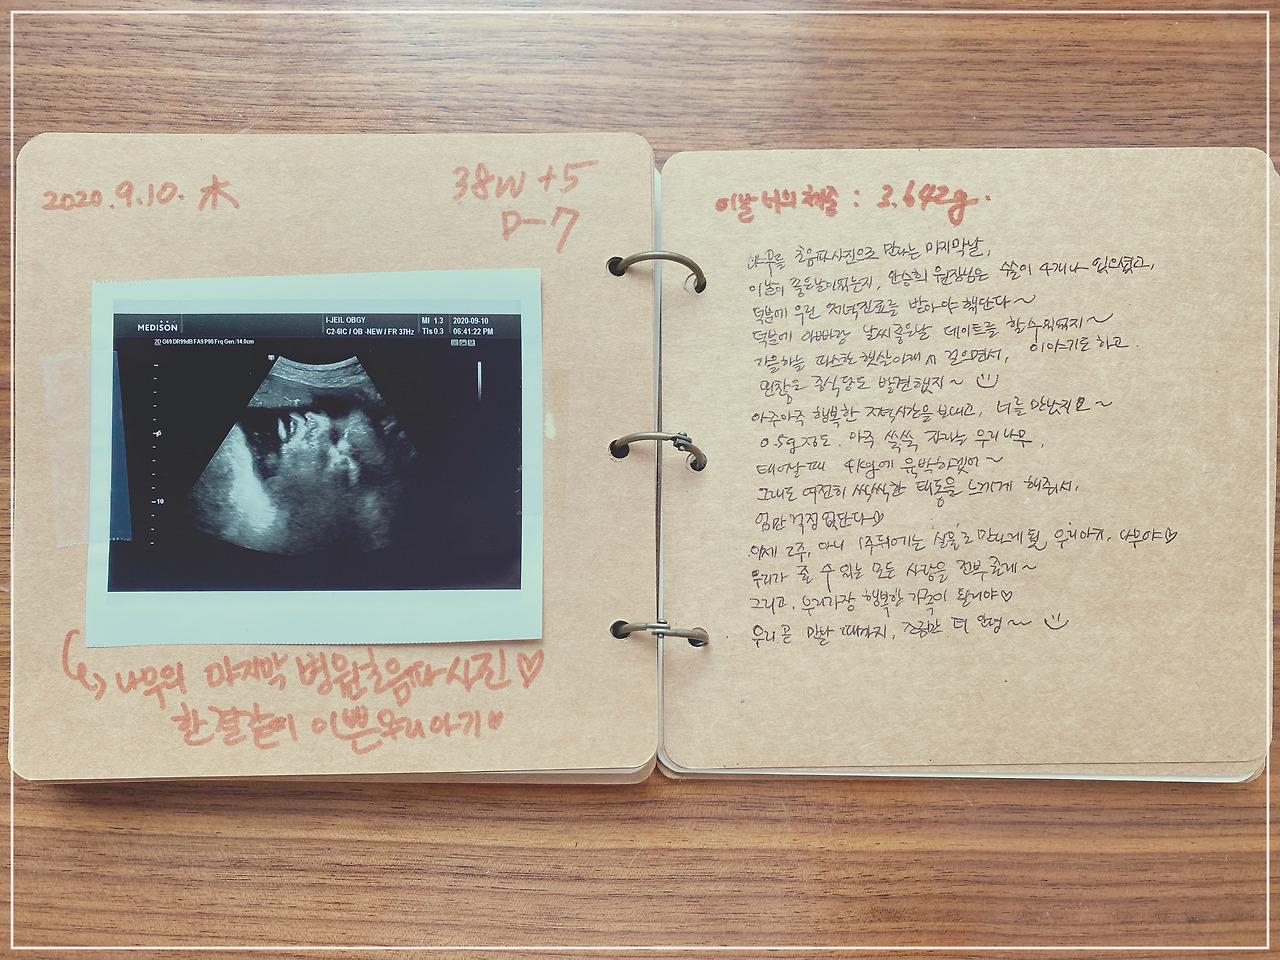 2020.9.10. 木
38W+5
D-7
MEDISON
I-JEIL OBGY
C2-6IC / OB -NEW / FR 37Hz
MI 1.3
TIs 0.3
2020-09-10
06:41:22 PM
2D G69 DR99dB FA9 P90 Frq Gen./14.0cm
10
나무의 마지막 병원초음파사진♡
한결같이 이쁜우리아기♥
이날 너의 체중 : 3.642g.
나무를 초음파사진으로 만나는 마지막날,
이날이 좋은날이었는지, 안승희 원장님은 수술이 4개나 있으셨고,
덕분에 우린 저녁진료를 받아야 했단다~
덕분에 아빠랑 날씨좋은날 데이트를 할수있었지~
가을하늘 따스한 햇살아래서 걸으면서, 이야기도 하고.
괜찮은 중식당도 발견했지~
아주아주 행복한 저녁시간을 보내고, 너를 만났지요~
0.5g정도. 아주 쑥쑥 자라는 우리나무,
태어날때 4kg에 육박하겠어~
그래도 여전히 씩씩한 태동을 느끼게 해줘서,
엄만 걱정없단다♡
이제 2주, 아니 1주뒤에는 '실물'로 만나게 될 우리아가, 나무야♡
우리가 줄 수 있는 모든 사랑을 전부 줄게~
그리고, 우리가장 행복한 가족이 될거야♡
우리 곧 만날 때까지, 조금만 더 안녕~